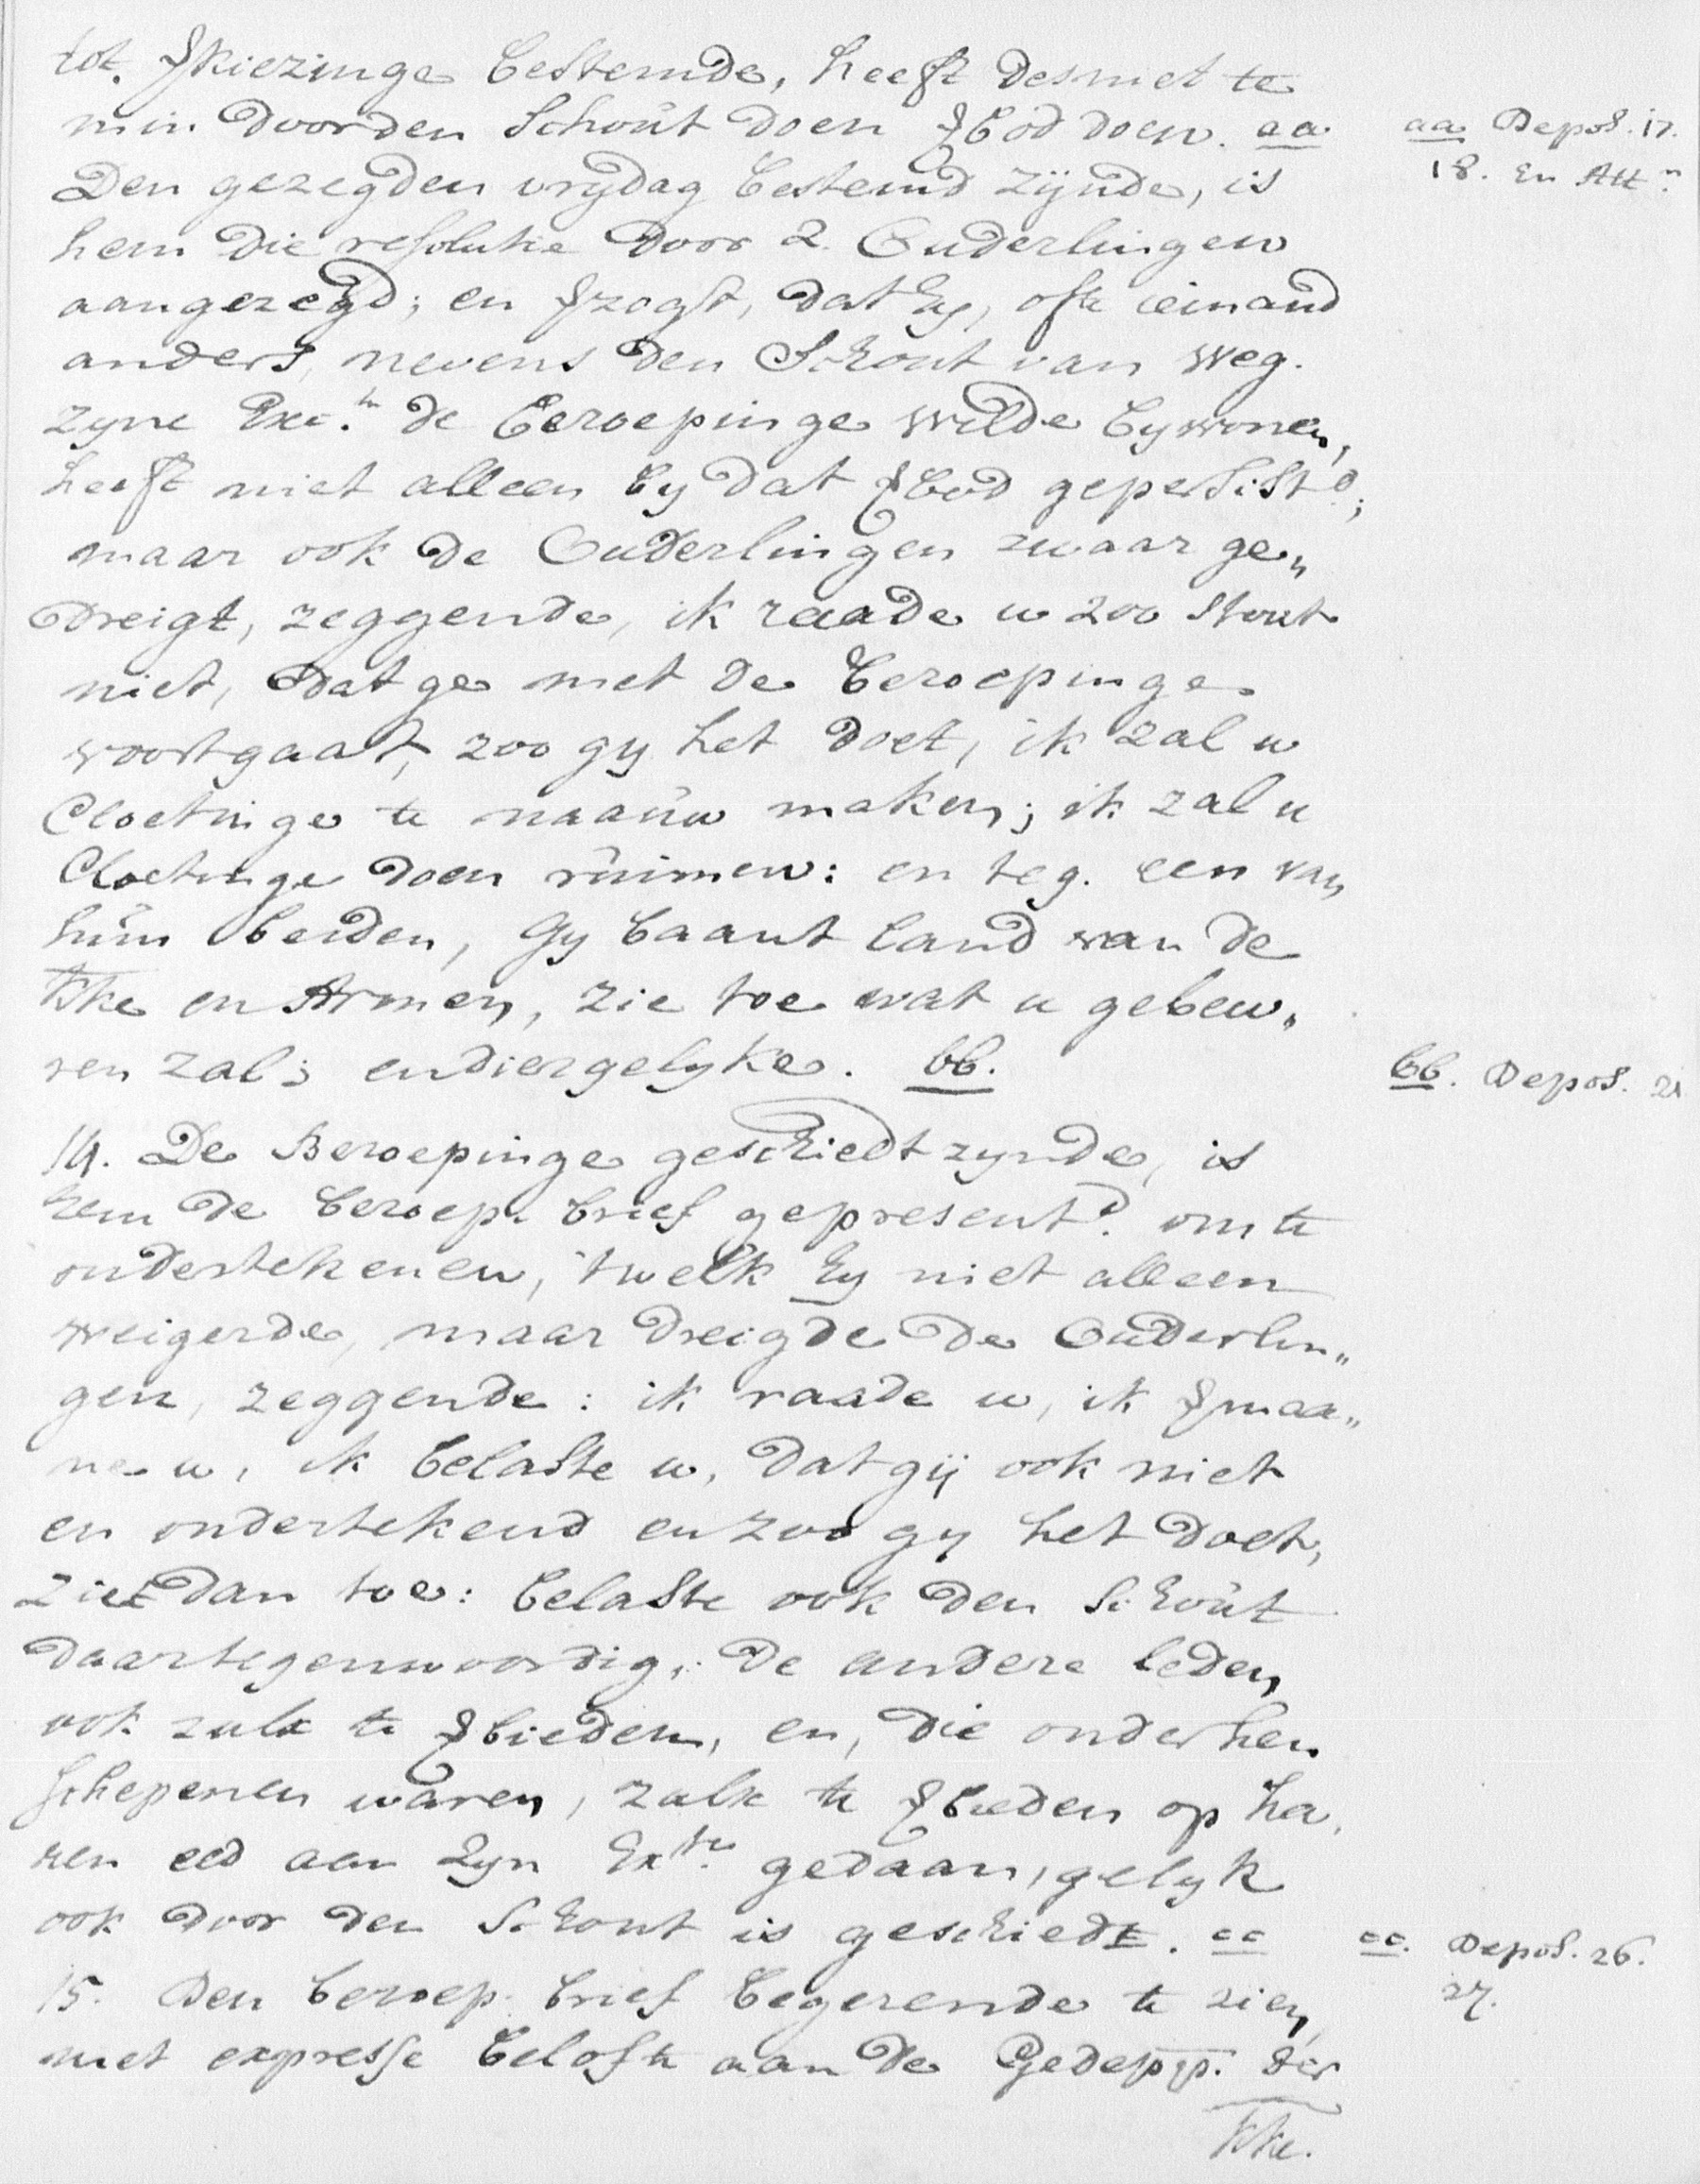 tot Vkiezinge bestemde, heeft desniet te
min door den Schoút doen Vbod doen. aa
aa Depos. 17.
18. en Att.n
Den gezegden vrijdag bestemd zijnde, is
hem die resolutie door 2. Ouderlingen
aangezegd; en Vzogt, dat hy, ofte iemand
anders, nevens den Schout van weg.
zyne Exc.tie de beroepinge wilde bywonen,
heeft niet alleen by dat Vbod gepersist.d;
maar ook de Ouderlingen zwaar ge„
dreigt, zeggende, ik raade u zoo stout
niet, dat ge met de beroepinge
voortgaat, zoo gy het doet, ik zal u
Cloetinge te naaúw maken; ik zal u
Cloetinge doen rúimen: en teg. een van
hún beiden, gy baant land van de
Kke en Armen, zie toe wat u gebeu„
ren zal; en diergelyke. bb.
bb. Depos. 21
14. De Beroepinge geschiedt zynde, is
hem de beroep. brief gepresent.d om te
ondertekenen, 't welk hy niet alleen
weigerde, maar dreigde de Ouderlin„
gen, zeggende: ik raade u, ik Vmaa„
ne u, ik belaste u, dat gij ook niet
en ondertekend en zoo gy het doet,
ziet dan toe: belaste ook den Schoút
daar tegenwoordig, de andere leden
ook zulx te Vbieden, en, die onder hen
schepenen waren, zulx te Vbieden op ha„
ren eed aan Zyn Ex.tie gedaan, gelyk
ook door den Schout is geschiedt. cc
cc. Depos. 26.
27.
15. Den beroep. brief begerende te zien,
met expresse belofte aan de Gedepp. der
Kke.